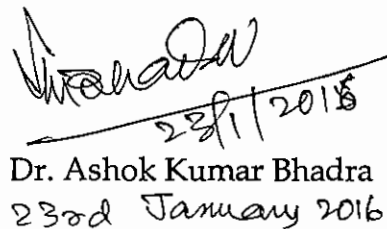 23/1/2016
Dr. Ashok Kumar Bhadra
23rd January 2016